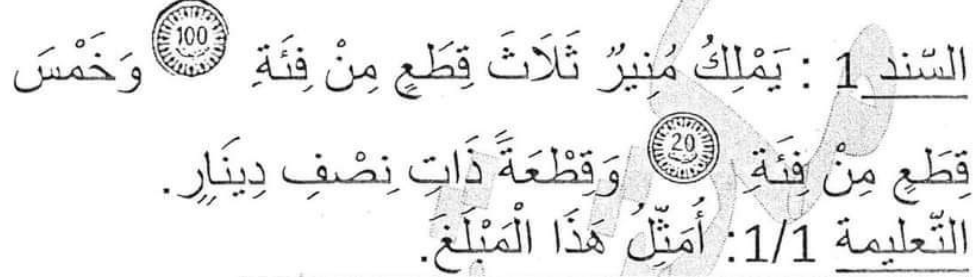 السّند 1 : يَمْلِكُ مُنِيرٌ ثَلَاثَ قِطَعٍ مِنْ فِئَةِ 100 وَخَمْسَ
قِطَعٍ مِنْ فِئَةِ 20 وَقِطْعَةً ذَاتِ نِصْفِ دِينَارٍ.
التّعليمة 1/1: أُمَثِّلُ هَذَا الْمَبْلَغَ.